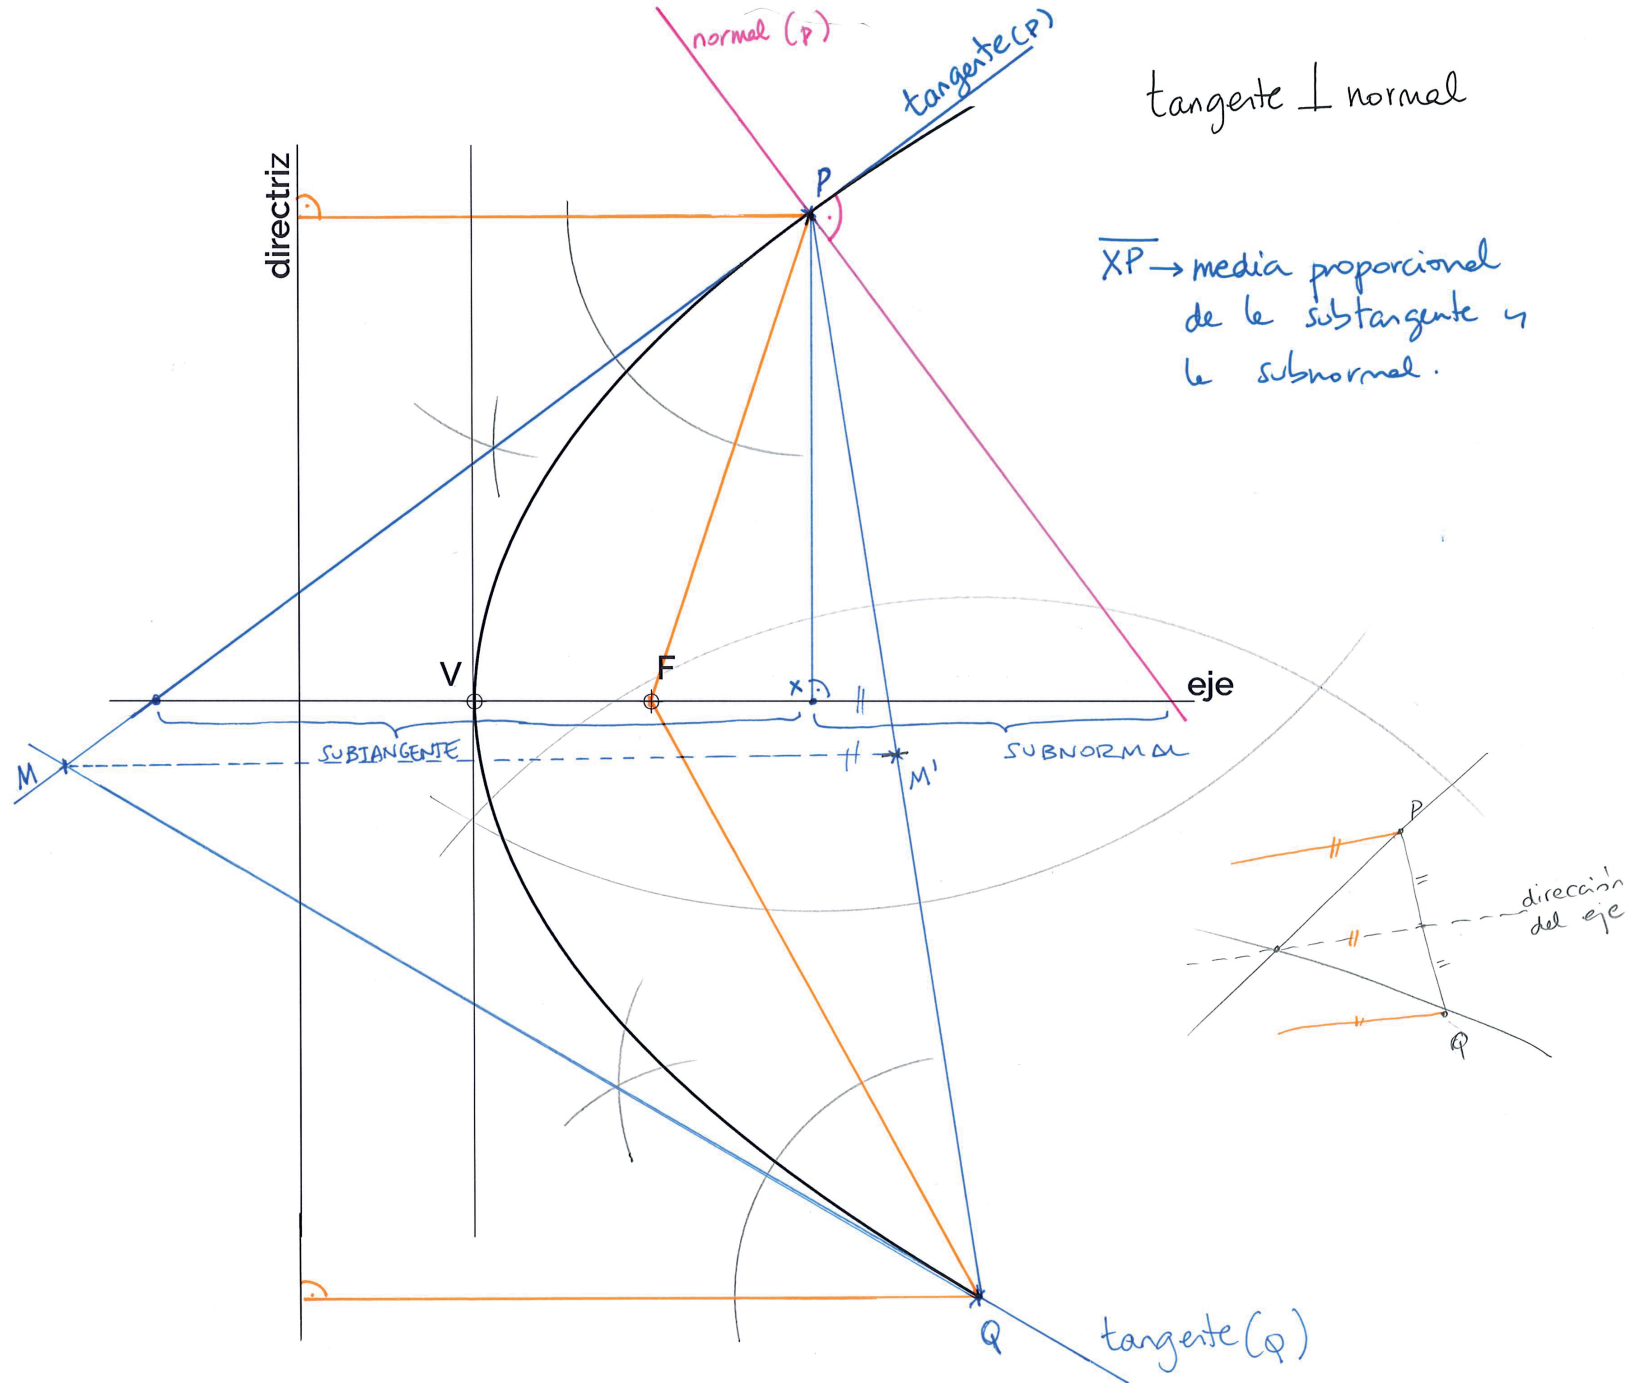 normal (p)
tangente(P)
tangente ⊥ normal
directriz
P
XP → media proporcional
de la subtangente y
la subnormal.
V
F
x
eje
SUBTANGENTE
SUBNORMAL
M
M'
P
dirección
del eje
Q
Q
tangente(Q)